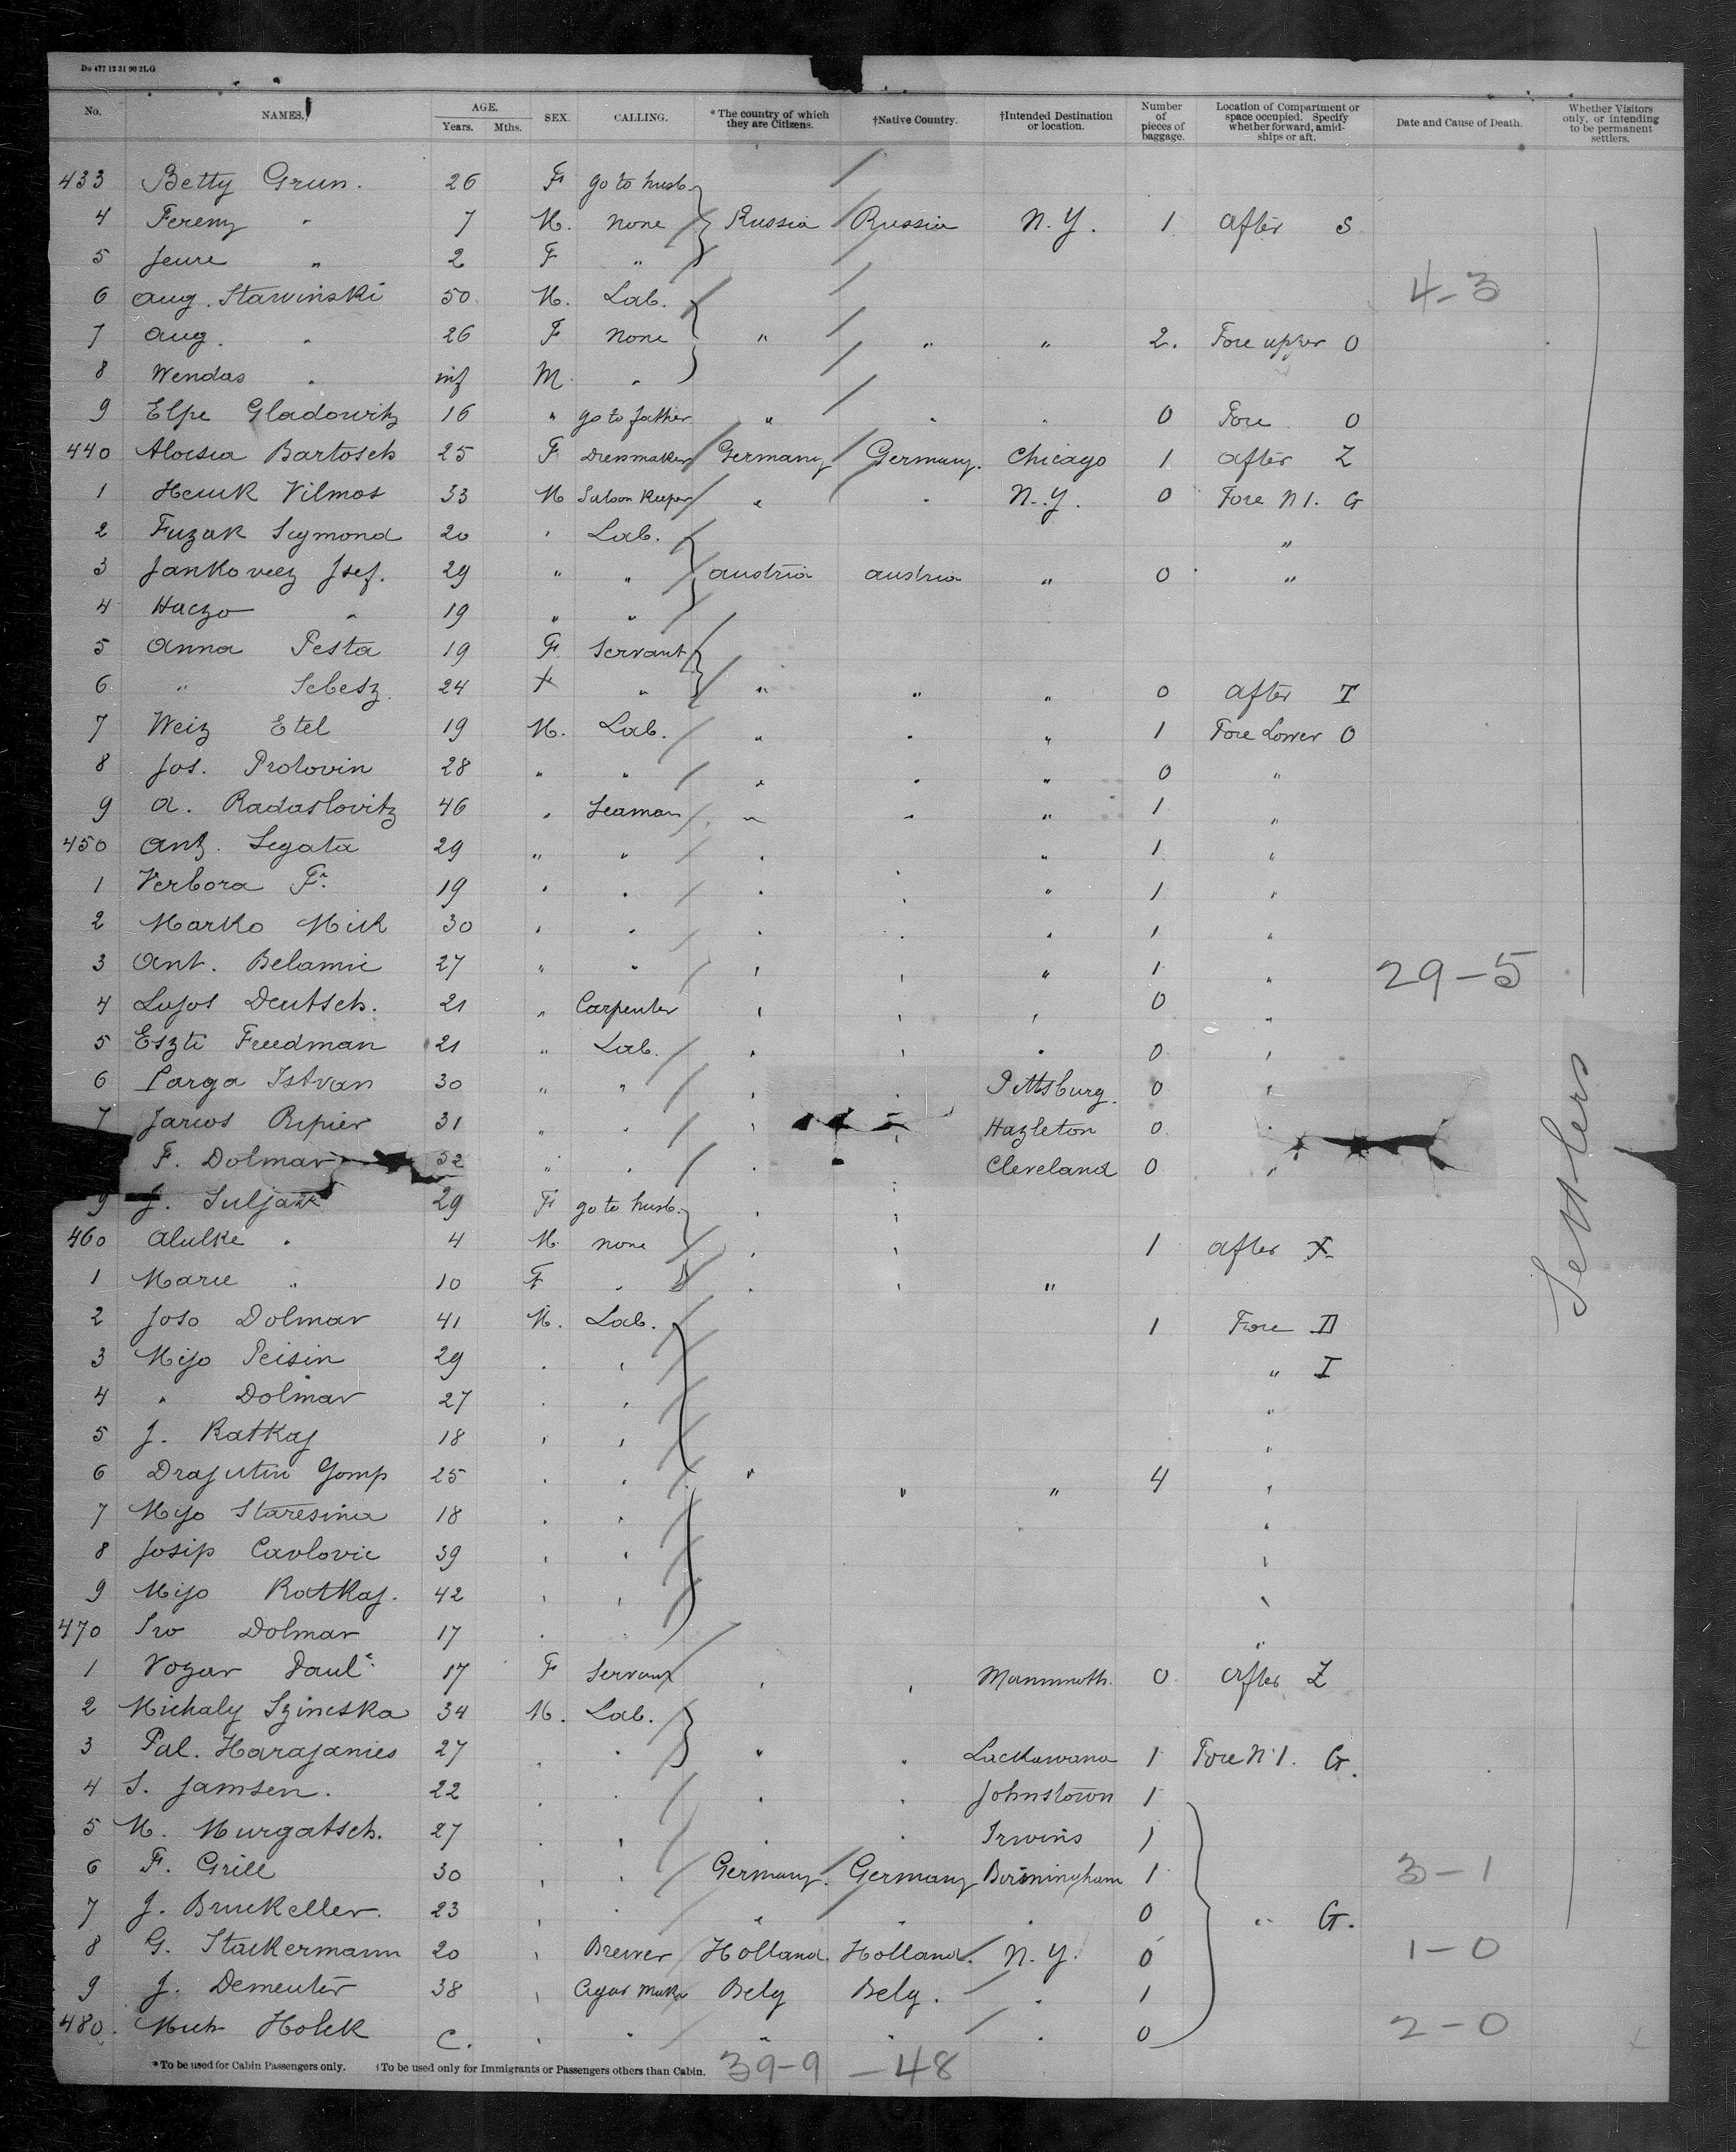 Do 477 12 31 90 2LG
No. NAMES. AGE. Years. Mths. SEX. CALLING. *The country of which they are Citizens. †Native Country. †Intended Destination or location. Number of pieces of baggage. Location of Compartment or space occupied. Specify whether forward, amidships or aft. Date and Cause of Death. Whether Visitors only, or intending to be permanent settlers.
433 Betty Grun. 26 F go to husb.
4 Fereny " 7 M. none Russia Russia N.Y. 1 after S
5 " 2 F "
6 Aug. Stawinski 50 M. Lab. 4-3
7 Aug. " 26 F none " " " 2. Fore upper O
8 Wendas " inf M. "
9 Elpe Gladowitz 16 " go to father " " " 0 Fore O
440 Aloisia Bartosch 25 F Dressmaker Germany Germany. Chicago 1 after Z
1 Henrik Vilmos 33 M Saloon Keeper " " N.Y. 0 Fore N1. G
2 Fuzak Sigmond 20 " Lab. "
3 Jankovecz Jsef. 29 " " Austria Austria " 0 "
4 Haczo " 19 " "
5 Anna Pesta 19 F. Servant
6 " Sebesz 24 " " " " 0 after I
7 Weiz Etel 19 M. Lab. " " " 1 Fore Lower O
8 Jos. Protovin 28 " " " " " 0 "
9 A. Radaslovitz 46 " Seaman " " " 1 "
450 Ant. Segata 29 " " " " 1 "
1 Verbora Fr. 19 " " " " " 1 "
2 Marko Mik 30 " " " " " 1 "
3 Ant. Belamic 27 " " " " " 1 " 29-5
4 Lajos Deutsch. 21 " Carpenter " " " 0 "
5 Eszti Freedman 21 " Lab. " " " 0 "
6 Parga Istvan 30 " " " " Pittsburg. 0 "
7 Repier 31 " " " " Hazleton 0 "
F. Dolmar 32 " " " Cleveland 0 "
9 J. Suljak 29 F go to husb. " "
460 Alulke " 4 M. none " " 1 after
1 Marie " 10 F " " " "
2 Joso Dolmar 41 M. Lab. 1 Fore D
3 Mijo Peisin 29 " " " I
4 " Dolmar 27 " " "
5 J. Ratkaj 18 " " "
6 Drajutin Gomp 25 " " " " " 4 "
7 Mijo Staresina 18 " " "
8 Josip Cavlovic 39 " " "
9 Mijo Ratkaj. 42 " " "
470 Ivo Dolmar 17 " "
1 Vozar 17 F Servant " " Mammoth. 0 after Z
2 Michaly Szincska 34 M. Lab.
3 Pal. Harajanies 27 " " " " Lackawana 1 Fore N1. G.
4 S. Jamsen. 22 " " " " Johnstown 1
5 M. Murgatsch. 27 " " " " Irwins 1
6 F. Grill 30 " " Germany. Germany Birmingham 1 3-1
7 J. Bruckeller. 23 " " " " " 0 " G.
8 G. Stackermann 20 " Brewer Holland. Holland. N.Y. 0 1-0
9 J. Demeuter 38 " Cigar Maker Belg Belg. " 1
480. Mich Holek C. " " " " " 0 2-0
*To be used for Cabin Passengers only. †To be used only for Immigrants or Passengers others than Cabin. 39-9 -48
Settlers